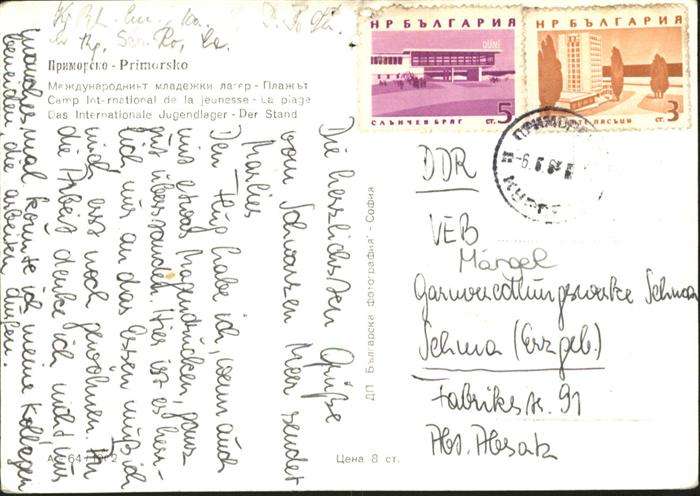 Приморско - Primorsko
Международният младежки лагер - Плажът
Camp International de la jeunesse - La plage
Das Internationale Jugendlager - Der Stand
Die herzlichsten Grüße
vom Schwarzen Meer sendet
Marlies
Den Flug habe ich, wenn auch
mit etwas Magendrücken, ganz
gut überstanden. Hier ist es herr-
lich, nur an das Essen muß ich
mich erst noch gewöhnen. An
die Arbeit denke ich nicht, nur
manches mal könnte ich meine Kollegen
beneiden, die arbeiten dürfen.
ДП „Българска фотография" - София
Цена 8 ст.
НР БЪЛГАРИЯ
DUNE
СЛЪНЧЕВ БРЯГ
ст. 5
НР БЪЛГАРИЯ
ПЯСЪЦИ
ст. 3
ПРИМОРСКО
DDR
VEB
Mangel
Garnveredlungswerke Sehma
Sehma (Erzgeb.)
Fabrikstr. 91
Abt. Absatz